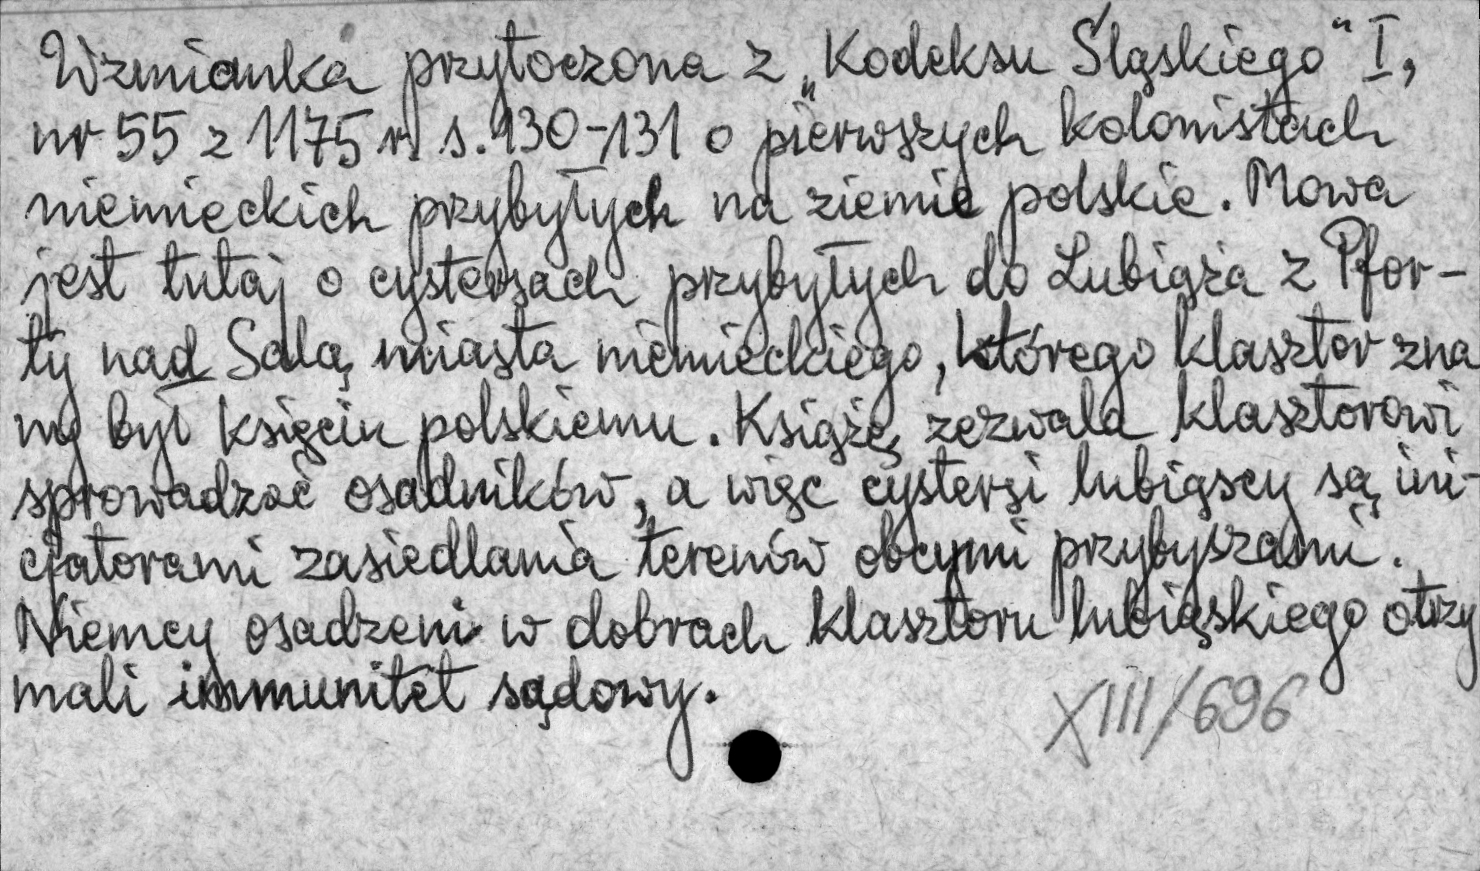 Wzmianka przytoczona z „Kodeksu Śląskiego” I,
nr 55 z 1175 r. s. 130-131 o pierwszych kolonistach
niemieckich przybyłych na ziemie polskie. Mowa
jest tutaj o cystersach przybyłych do Lubiąża z Pfor-
ty nad Salą miasta niemieckiego, którego klasztor zna
ny był księciu polskiemu. Książę zezwala klasztorowi
sprowadzać osadników, a więc cystersi lubiąscy są ini-
cjatorami zasiedlania terenów obcymi przybyszami.
Niemcy osadzeni w dobrach klasztoru lubiąskiego otrzy
mali immunitet sądowy.
XIII/696